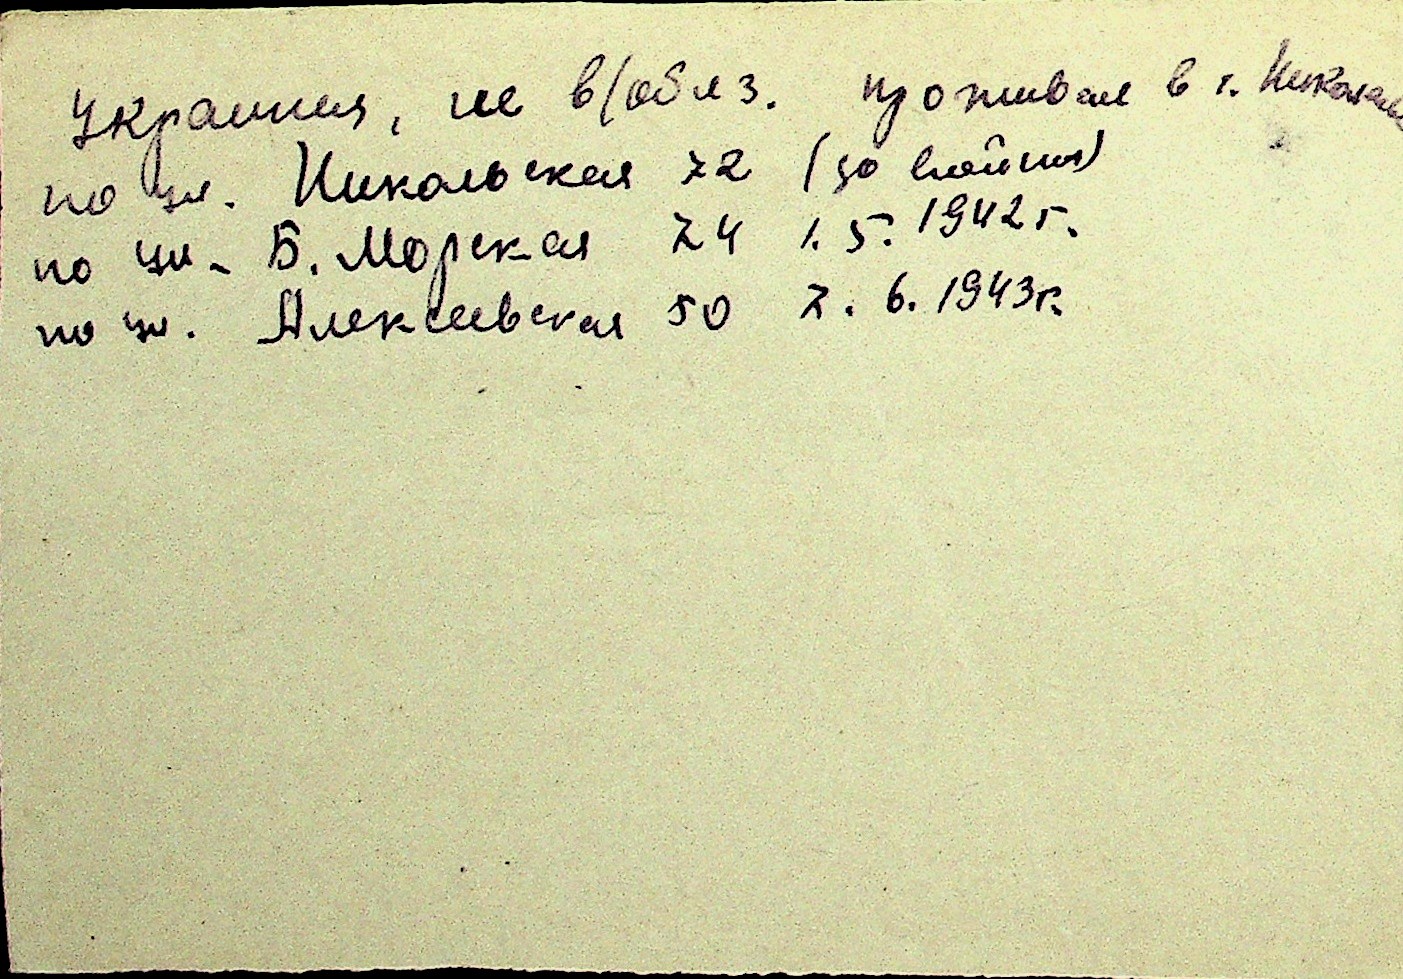 Украинец, не в/обяз. проживал в г. Николаев
по ул. Никольская 72 (до войны)
по ул. Б. Морская 74 1.5.1942 г.
по ул. Алексеевская 50 7.6.1943 г.